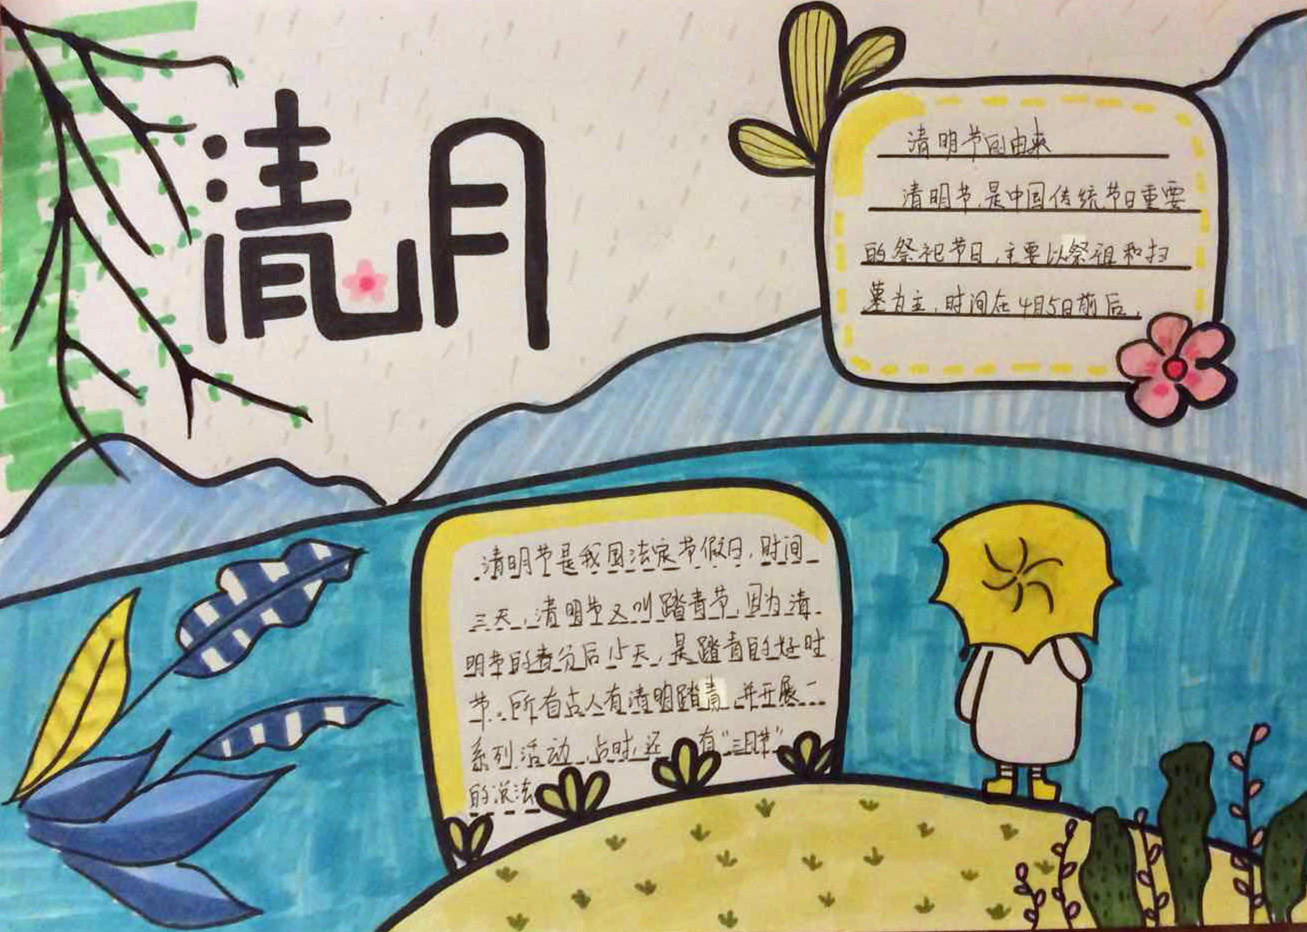 清明
清明节的由来
清明节是中国传统节日重要
的祭祀节日,主要以祭祖和扫
墓为主,时间在4月5日前后,
清明节是我国法定节假日,时间
三天,清明节又叫踏青节,因为清
明节的春分后15天,是踏青的好时
节。所有古人有清明踏青,并开展一
系列活动,古时,还有“三月节”
的说法